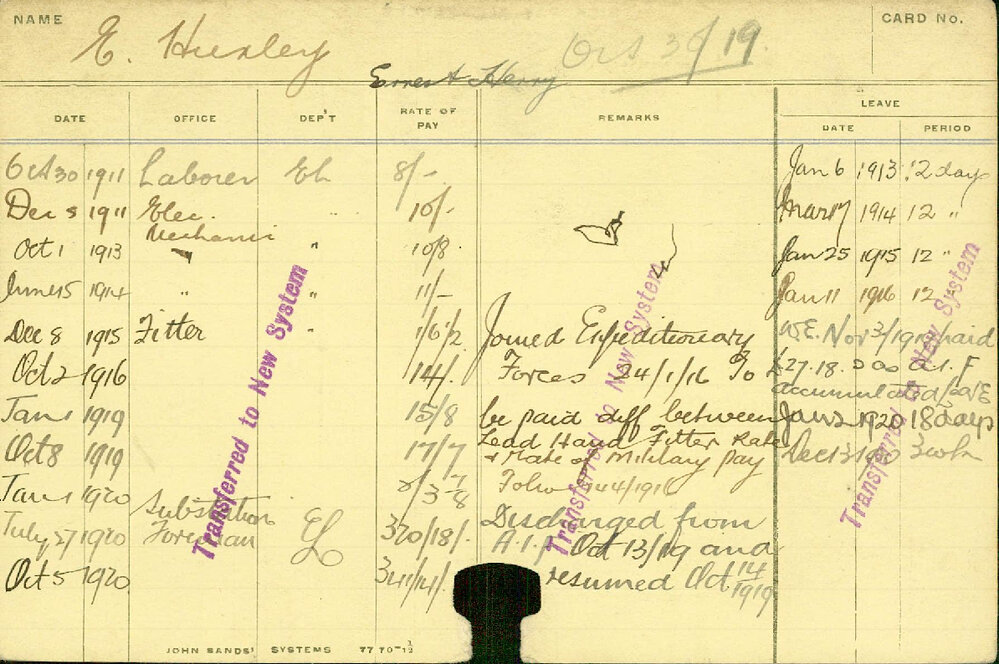 NAME
E. Huxley
Ernest Henry
Oct 30/19.
CARD No.
DATE OFFICE DEP'T RATE OF PAY REMARKS LEAVE
DATE PERIOD
Oct 30 1911 Laborer EL 8/- Jan 6 1913 12 days
Dec 5 1911 Elec. Mechanic " 10/- 1914 12 "
Oct 1 1913 " " 10/8. Jan 25 1915 12 "
June 15 1914 " " 11/- Jan 11 1916 12
Dec 8 1915 Fitter " Joined Expeditionary W.E. Nov 3/19 paid
Oct 2 1916 14/. Forces 24/1/16 To £27.18. as A.I.F
accumulated
Jan 1 1919 15/8 be paid diff between Jan 2 1920 18 days
Oct 8 1919 17/7 Lead Hand Fitter Rate Dec 13
& Rate of Military pay
Jan 1 1920
July 27 1920 Substation Foreman EL 320/18/- Discharged from
A.I.F Oct 13/19 and
Oct 5 1920 341/14/. resumed Oct 14 1919
Transferred to New System
Transferred to New System
Transferred to New System
JOHN SANDS' SYSTEMS